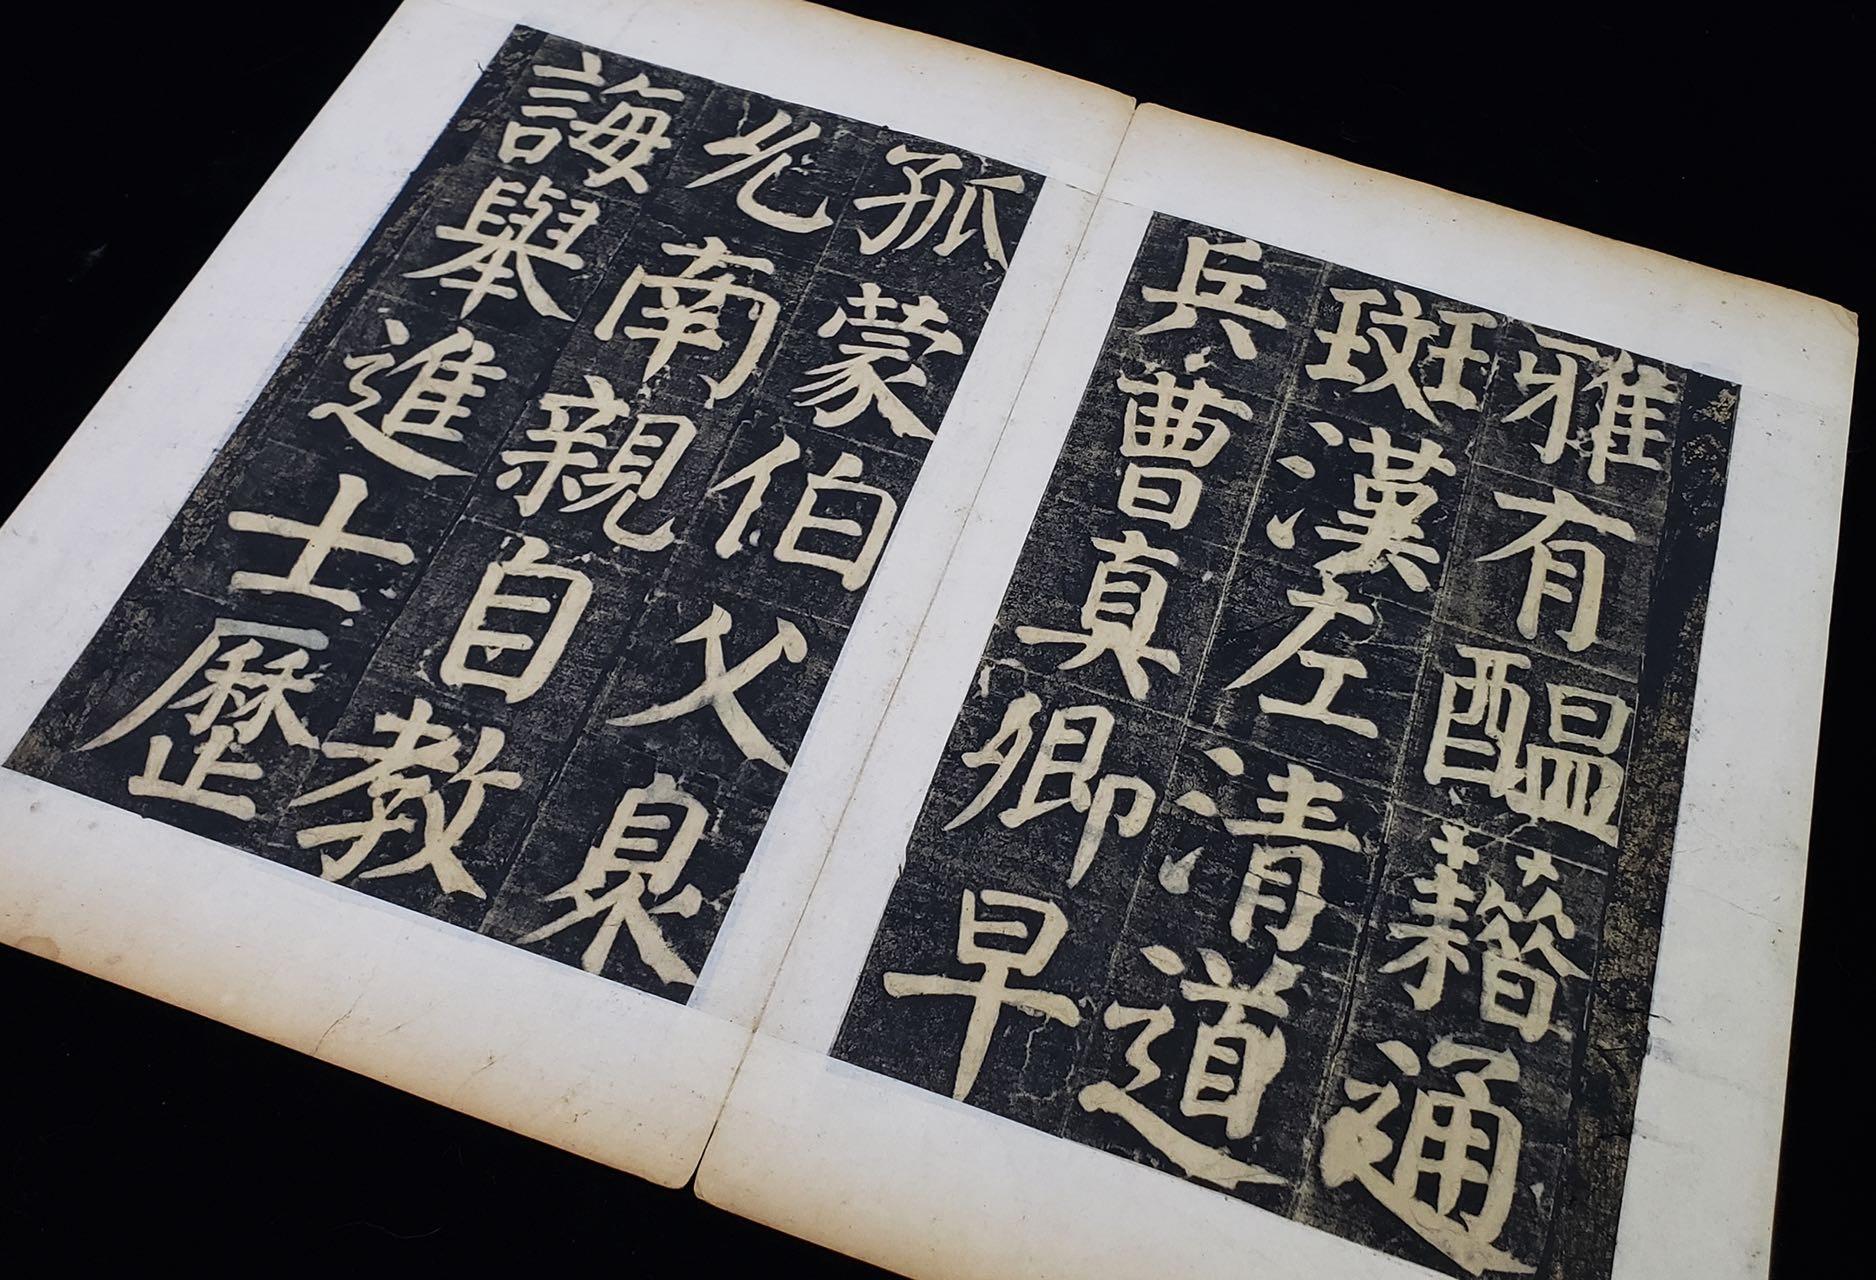 雅有醞藉通
斑漢左清道
兵曹真卿早
孤蒙伯父臮
允南親自教
誨舉進士歷